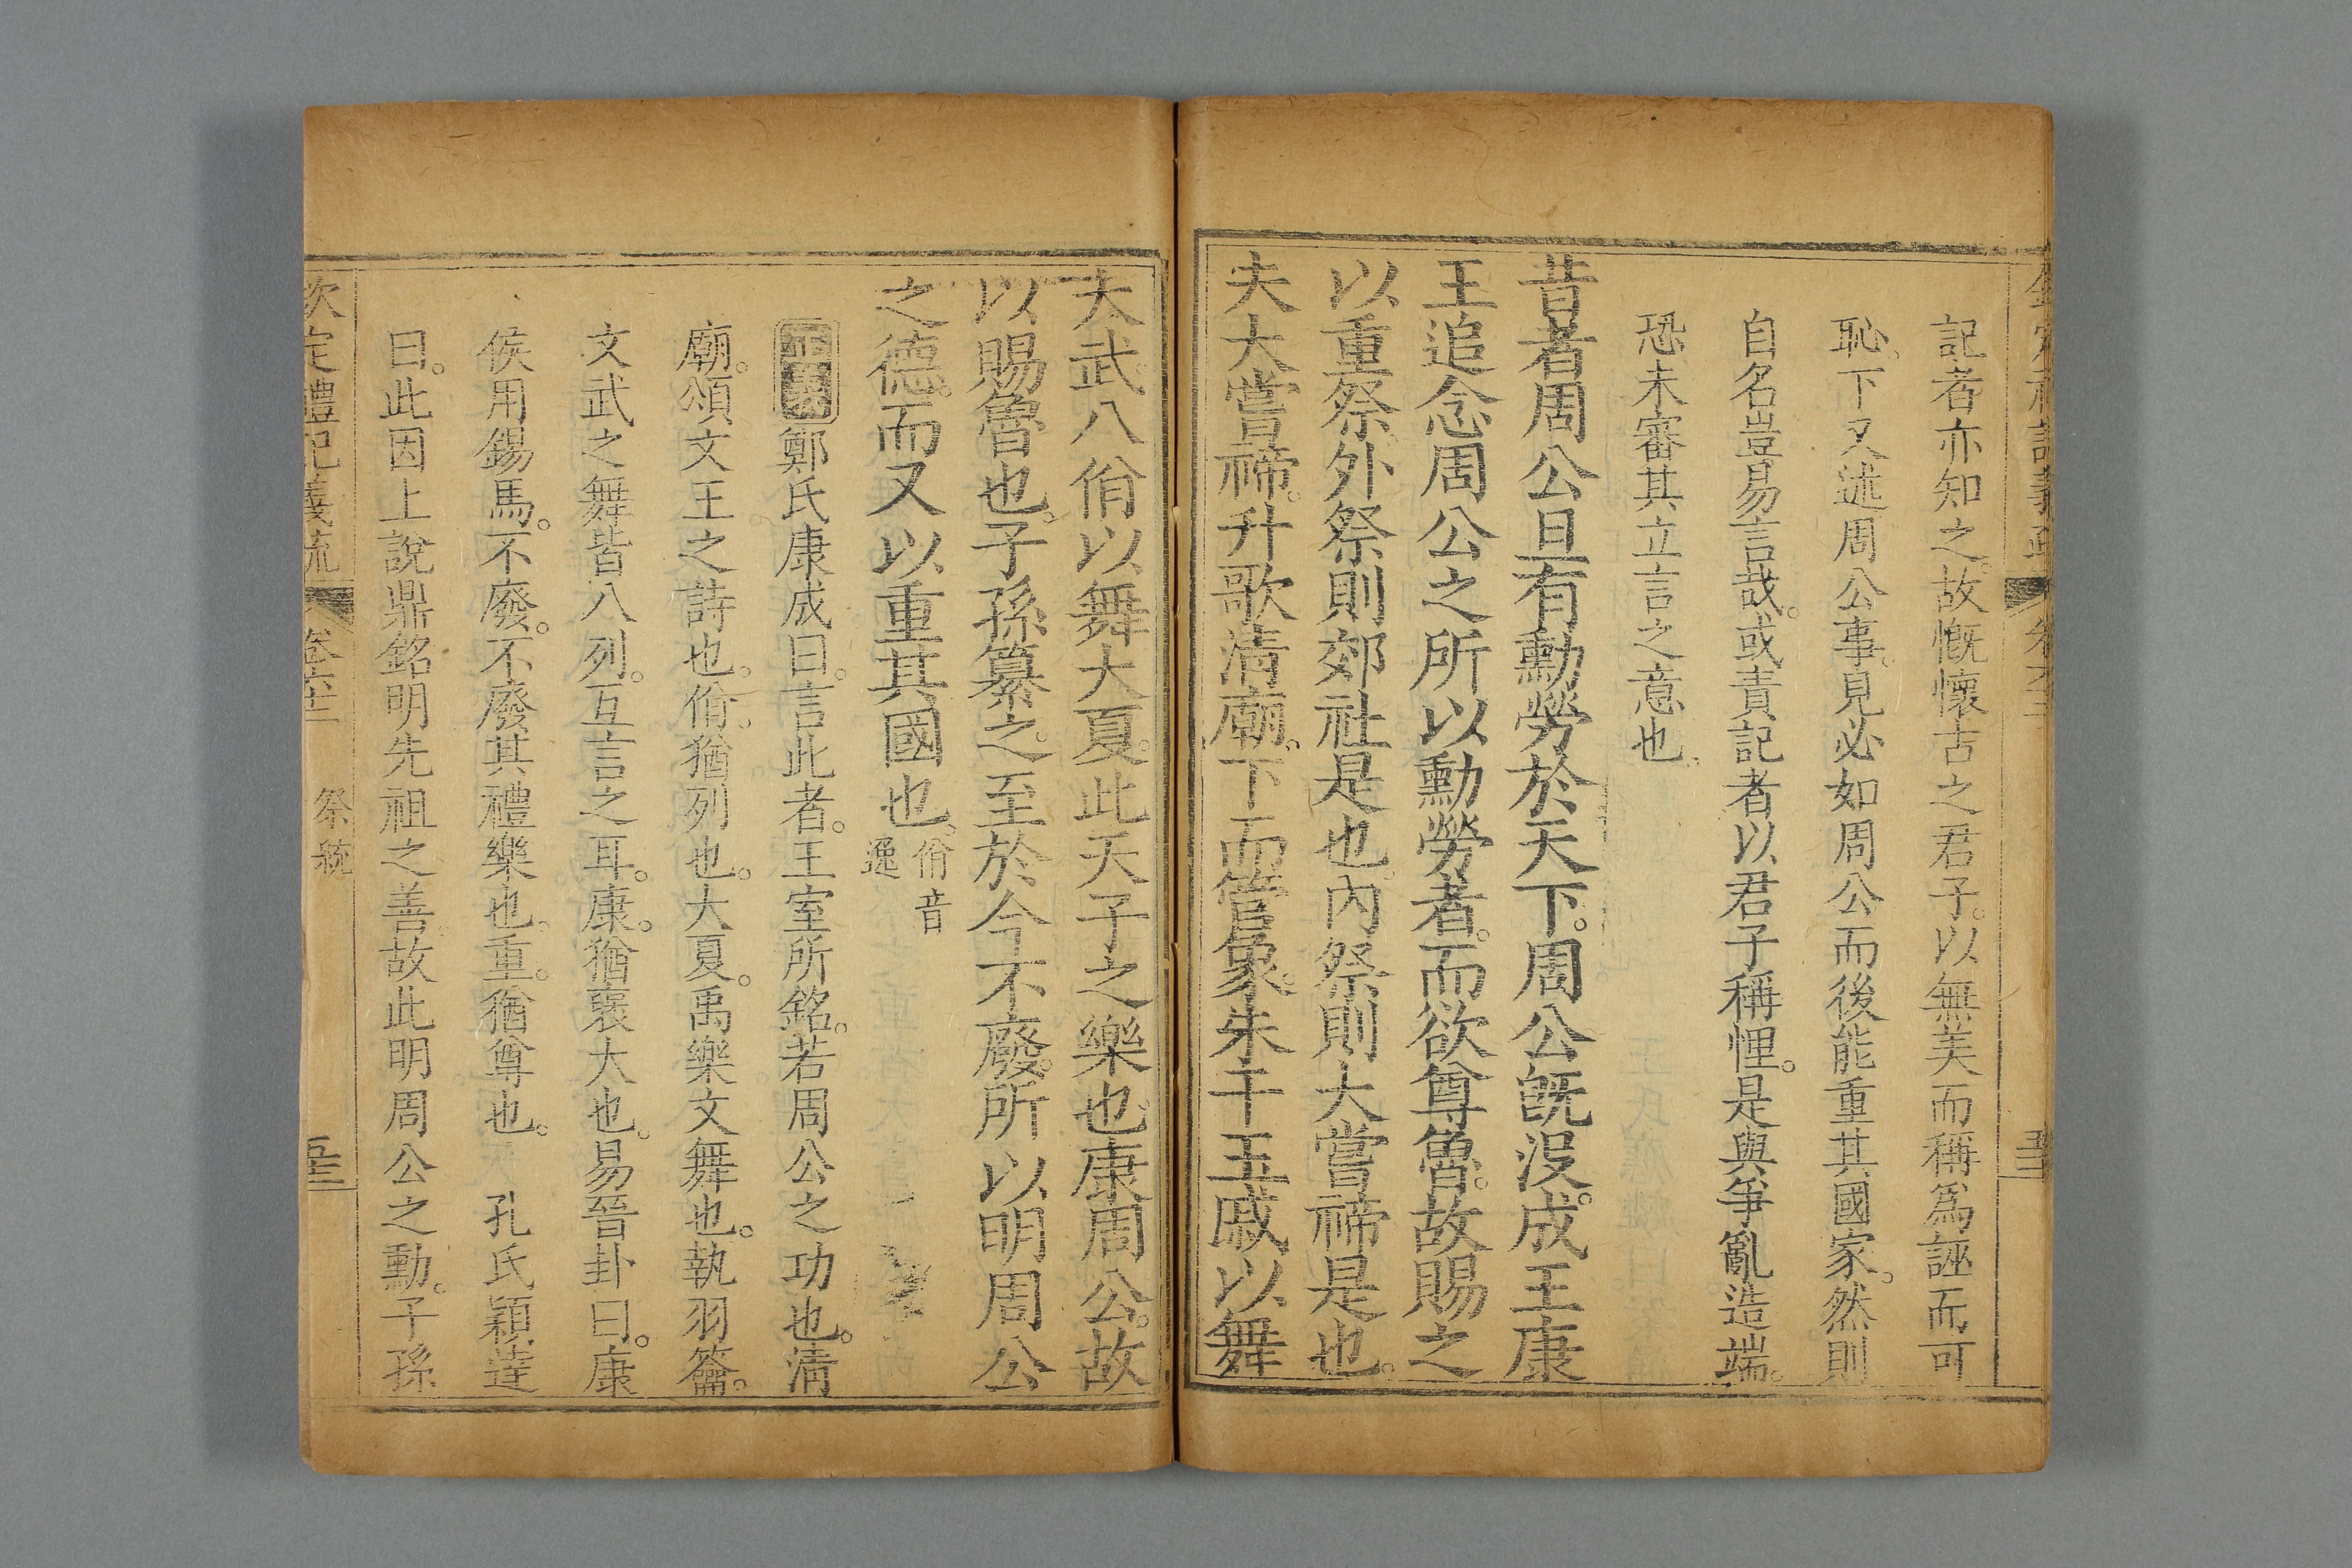 記者亦知之。故慨懷古之君子。以無美而稱爲誣而可
恥。下又述周公事。見必如周公而後能重其國家。然則
自名豈易言哉。或責記者以君子稱悝。是與爭亂造端。
恐未審其立言之意也。
昔者周公旦有勳勞於天下。周公旣沒。成王康
王追念周公之所以勳勞者。而欲尊魯。故賜之
以重祭。外祭則郊社是也。內祭則大嘗禘是也。
夫大嘗禘。升歌淸廟。下而管象。朱干玉戚以舞
大武。八佾以舞大夏。此天子之樂也。康周公。故
以賜魯也。子孫纂之。至於今不廢。所以明周公
之德。而又以重其國也。佾音逸
鄭氏康成曰。言此者。王室所銘。若周公之功也。淸
廟。頌文王之詩也。佾。猶列也。大夏。禹樂文舞也。執羽籥。
文武之舞皆八列。互言之耳。康。猶襃大也。易晉卦曰。康
侯用錫馬。不廢。不廢其禮樂也。重。猶尊也。 孔氏穎達
曰。此因上說鼎銘明先祖之善。故此明周公之勳。子孫
欽定禮記義疏 卷六十二 祭統 五十三